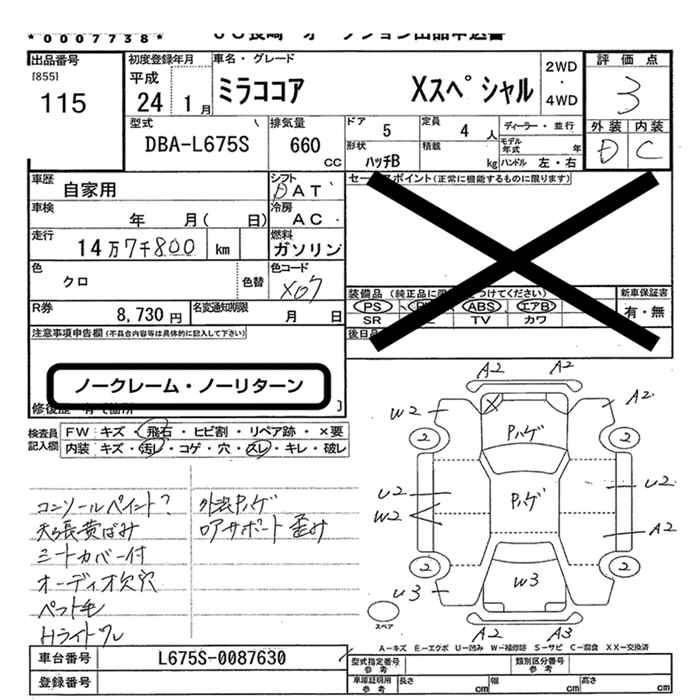 *0007738*
出品番号
[855]
115
初度登録年月
平成
24 1月
車名・グレード
ミラココア Xスペシャル
2WD
・
4WD
評価点
3
外装 内装
D C
型式
DBA-L675S
排気量
660
CC
ドア 5
定員 4 人
ディーラー・並行
形状 ハッチB
積載 kg
モデル年式 年
ハンドル 左・右
車歴 自家用
シフト
DAT
車検 年 月( 日)
冷房
AC
走行 14万7千800 km
燃料
ガソリン
色 クロ
色替
色コード
X07
R券 8,730円
名変通知期限 月 日
セールスポイント(正常に機能するものに限ります)
装備品
PS ABS エアB
SR TV カワ
新車保証書
有・無
注意事項申告欄(不具合内容等は具体的に記入して下さい)
ノークレーム・ノーリターン
検査員記入欄
FW キズ・飛石・ヒビ割・リペア跡・×要
内装 キズ・汚レ・コゲ・穴・スレ・キレ・破レ
コンソールペイント?
天張黄ばみ
シートカバー付
オーディオ欠穴
ペット毛
Hライトクレ
外装Pハゲ
ロアサポート歪み
A2 A2
W2 A2
X Pハゲ
2 2
U2 Pハゲ U2
W2 A2
2 2
U3 W3
スペア
A2 A3
A-キズ E-エクボ U-凹み W-補修跡 S-サビ C-腐食 XX-交換済
車台番号 L675S-0087630
登録番号
型式指定番号参考
類別区分番号参考
車庫証明用参考
長さ cm 幅 cm 高さ cm